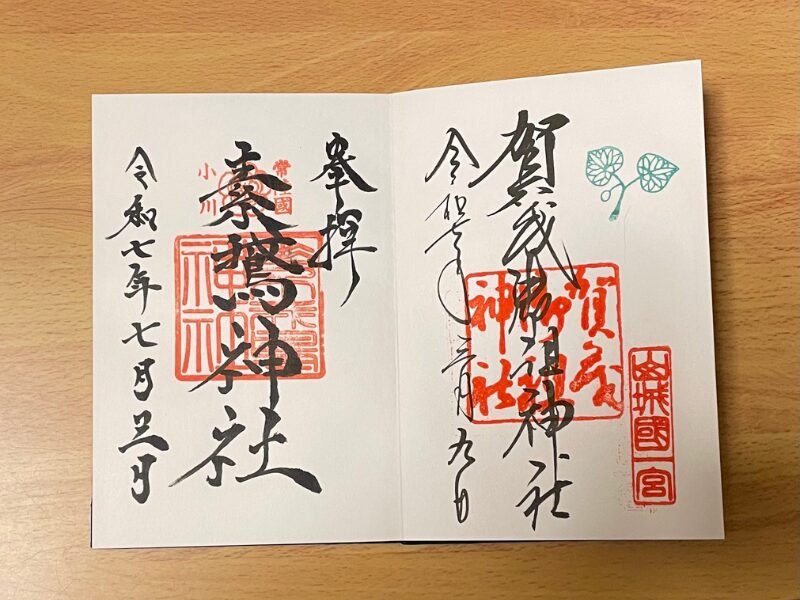 山城國一宮
賀茂御祖神社
賀茂御祖神社
令和七年三月九日
奉拝
常陸國
小川
素鵞神社
素鵞神社
令和七年七月 日